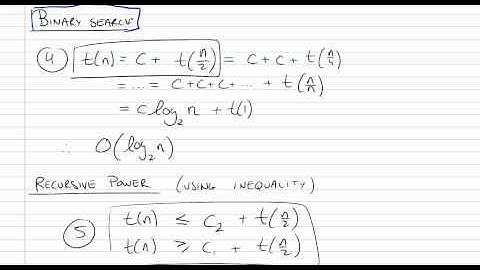 BINARY SEARCH:
④ t(n) = C + t(n/2) = C + C + t(n/4)
= ... = C+C+C+ ... + t(n/n)
= c log₂ n + t(1)
∴ O(log₂ n)
RECURSIVE POWER (USING INEQUALITY)
⑤ t(n) ≤ C₂ + t(n/2)
t(n) ≥ C₁ + t(n/2)